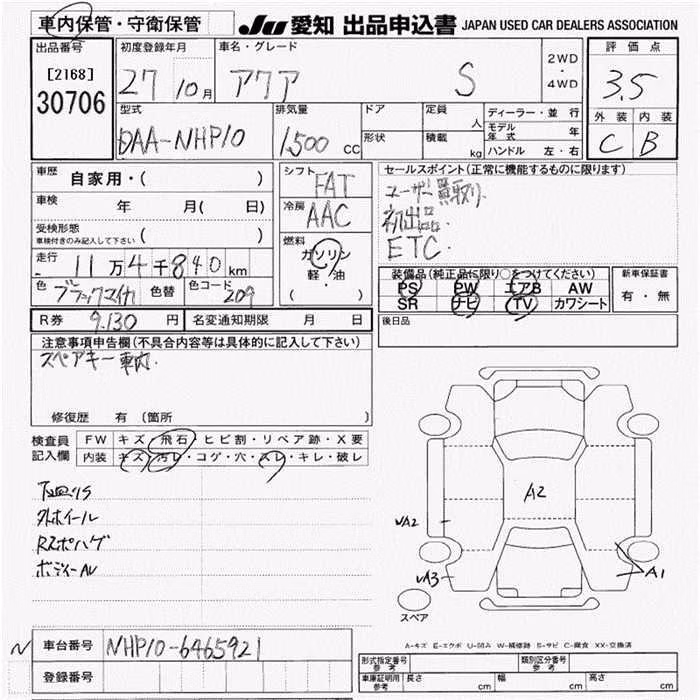 車内保管・守衛保管 JU 愛知 出品申込書 JAPAN USED CAR DEALERS ASSOCIATION
出品番号 初度登録年月 車名・グレード 評価点
[2168] 27 10月 アクア S 2WD・4WD 3.5
30706
型式 排気量 ドア 定員 人 ディーラー・並行 外装 内装
DAA-NHP10 1,500 CC 形状 積載 kg モデル年式 年 C B
ハンドル 左・右
車歴 自家用・( ) シフト FAT セールスポイント(正常に機能するものに限ります)
車検 年 月( 日) 冷房 AAC ユーザー買取り
受検形態 ( ) 初出品
車検付きのみ記入して下さい 燃料 ETC.
走行 11万4千840km ガソリン 装備品(純正品に限り○をつけてください) 新車保証書
色 ブラックマイカ 色替 色コード 209 軽・油 PS PW エアB AW 有・無
( ) SR ナビ TV カワシート
R券 9,130 円 名変通知期限 月 日 後日品
注意事項申告欄(不具合内容等は具体的に記入して下さい)
スペアキー車内.
修復歴 有 (箇所 )
検査員 FW キズ・飛石・ヒビ割・リペア跡・X要
記入欄 内装 キズ・汚レ・コゲ・穴・スレ・キレ・破レ
下回りS
外ホイール
Rスポハゲ
A2
A2
A3
A1
スペア
A-キズ E-エクボ U-凹み W-補修跡 S-サビ C-腐食 XX-交換済
車台番号 NHP10-6465921
登録番号
形式指定番号 参考 類別区分番号 参考
車庫証明用 参考 長さ cm 幅 cm 高さ cm